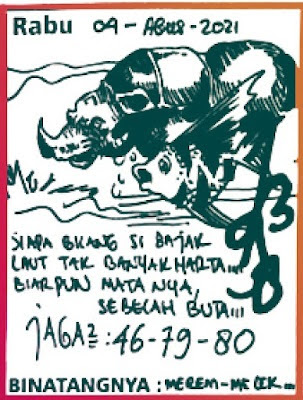 Rabu 04 - AGUS - 2021
SIAPA BILANG SI BAJAK
LAUT TAK BANYAK HARTA...
BIARPUN MATA NYA,
SEBELAH BUTA...
JAGA2 : 46-79-80
BINATANGNYA : MEREM-MELEK...